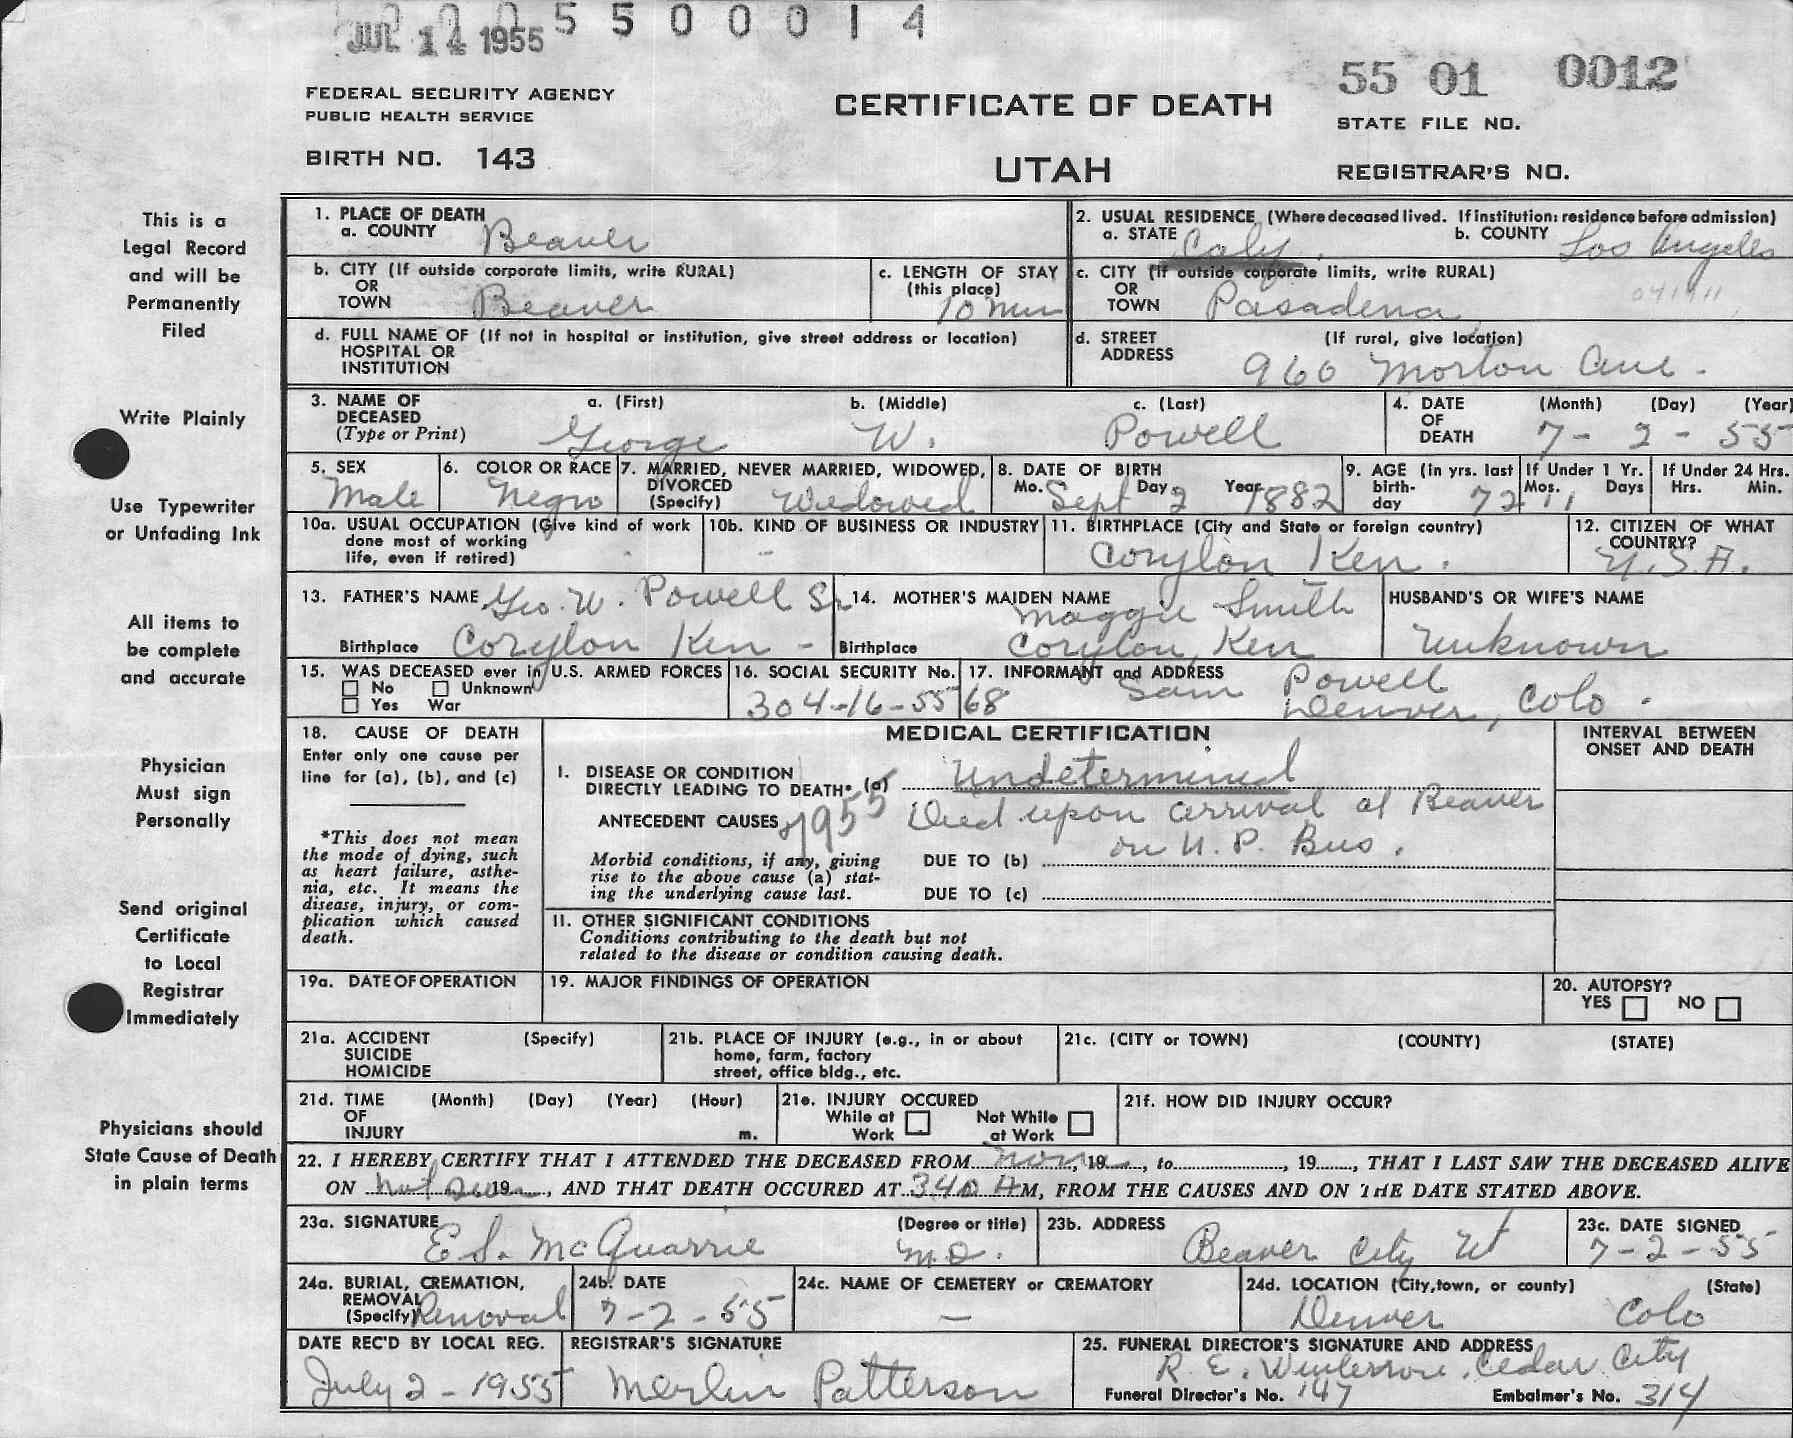 JUL 14 1955 5 5 0 0 0 1 4
55 01 0012
FEDERAL SECURITY AGENCY
PUBLIC HEALTH SERVICE
BIRTH NO. 143
CERTIFICATE OF DEATH
UTAH
STATE FILE NO.
REGISTRAR'S NO.
This is a
Legal Record
and will be
Permanently
Filed
Write Plainly
Use Typewriter
or Unfading Ink
All items to
be complete
and accurate
Physician
Must sign
Personally
Send original
Certificate
to Local
Registrar
Immediately
Physicians should
State Cause of Death
in plain terms
1. PLACE OF DEATH
a. COUNTY Beaver
2. USUAL RESIDENCE (Where deceased lived. If institution: residence before admission)
a. STATE Calif. b. COUNTY Los Angeles
b. CITY (If outside corporate limits, write RURAL)
OR
TOWN Beaver
c. LENGTH OF STAY
(this place)
10 Min
c. CITY (If outside corporate limits, write RURAL)
OR
TOWN Pasadena
d. FULL NAME OF (If not in hospital or institution, give street address or location)
HOSPITAL OR
INSTITUTION
d. STREET (If rural, give location)
ADDRESS 960 Morton Ave.
3. NAME OF DECEASED (Type or Print)
a. (First) b. (Middle) c. (Last)
George W. Powell
4. DATE OF DEATH (Month) (Day) (Year)
7 - 2 - 55
5. SEX
Male
6. COLOR OR RACE
Negro
7. MARRIED, NEVER MARRIED, WIDOWED,
DIVORCED
(Specify) Widowed
8. DATE OF BIRTH
Mo. Sept Day 2 Year 1882
9. AGE (in yrs. last
birth-
day 72
If Under 1 Yr.
Mos. Days
11
If Under 24 Hrs.
Hrs. Min.
10a. USUAL OCCUPATION (Give kind of work
done most of working
life, even if retired) -
10b. KIND OF BUSINESS OR INDUSTRY
-
11. BIRTHPLACE (City and State or foreign country)
Corylon Ken.
12. CITIZEN OF WHAT
COUNTRY?
U.S.A.
13. FATHER'S NAME Geo. W. Powell Sr
Birthplace Corylon Ken -
14. MOTHER'S MAIDEN NAME
Maggie Smith
Birthplace Corylon, Ken
HUSBAND'S OR WIFE'S NAME
Unknown
15. WAS DECEASED ever in U.S. ARMED FORCES
No Unknown
Yes War
16. SOCIAL SECURITY No.
304-16-5568
17. INFORMANT and ADDRESS
Sam Powell
Denver, Colo.
18. CAUSE OF DEATH
Enter only one cause per
line for (a), (b), and (c)
*This does not mean
the mode of dying, such
as heart failure, asthe-
nia, etc. It means the
disease, injury, or com-
plication which caused
death.
MEDICAL CERTIFICATION
INTERVAL BETWEEN
ONSET AND DEATH
I. DISEASE OR CONDITION
DIRECTLY LEADING TO DEATH* (a) Undetermined
7955
Died upon arrival at Beaver
on U.P. Bus.
ANTECEDENT CAUSES
Morbid conditions, if any, giving
rise to the above cause (a) stat-
ing the underlying cause last.
DUE TO (b)
DUE TO (c)
II. OTHER SIGNIFICANT CONDITIONS
Conditions contributing to the death but not
related to the disease or condition causing death.
19a. DATE OF OPERATION
19. MAJOR FINDINGS OF OPERATION
20. AUTOPSY?
YES NO
21a. ACCIDENT (Specify)
SUICIDE
HOMICIDE
21b. PLACE OF INJURY (e.g., in or about
home, farm, factory
street, office bldg., etc.
21c. (CITY or TOWN) (COUNTY) (STATE)
21d. TIME (Month) (Day) (Year) (Hour)
OF
INJURY m.
21e. INJURY OCCURED
While at Work Not While at Work
21f. HOW DID INJURY OCCUR?
22. I HEREBY CERTIFY THAT I ATTENDED THE DECEASED FROM none, 19, to, 19, THAT I LAST SAW THE DECEASED ALIVE
ON not seen 19, AND THAT DEATH OCCURED AT 340 A M, FROM THE CAUSES AND ON THE DATE STATED ABOVE.
23a. SIGNATURE (Degree or title)
E S. McQuarrie M.D.
23b. ADDRESS
Beaver City Ut
23c. DATE SIGNED
7-2-55
24a. BURIAL, CREMATION,
REMOVAL
(Specify) Removal
24b. DATE
7-2-55
24c. NAME OF CEMETERY or CREMATORY
-
24d. LOCATION (City, town, or county) (State)
Denver Colo
DATE REC'D BY LOCAL REG.
July 2 - 1955
REGISTRAR'S SIGNATURE
Merlin Patterson
25. FUNERAL DIRECTOR'S SIGNATURE AND ADDRESS
R. E. Cedar City
Funeral Director's No. 147 Embalmer's No. 314